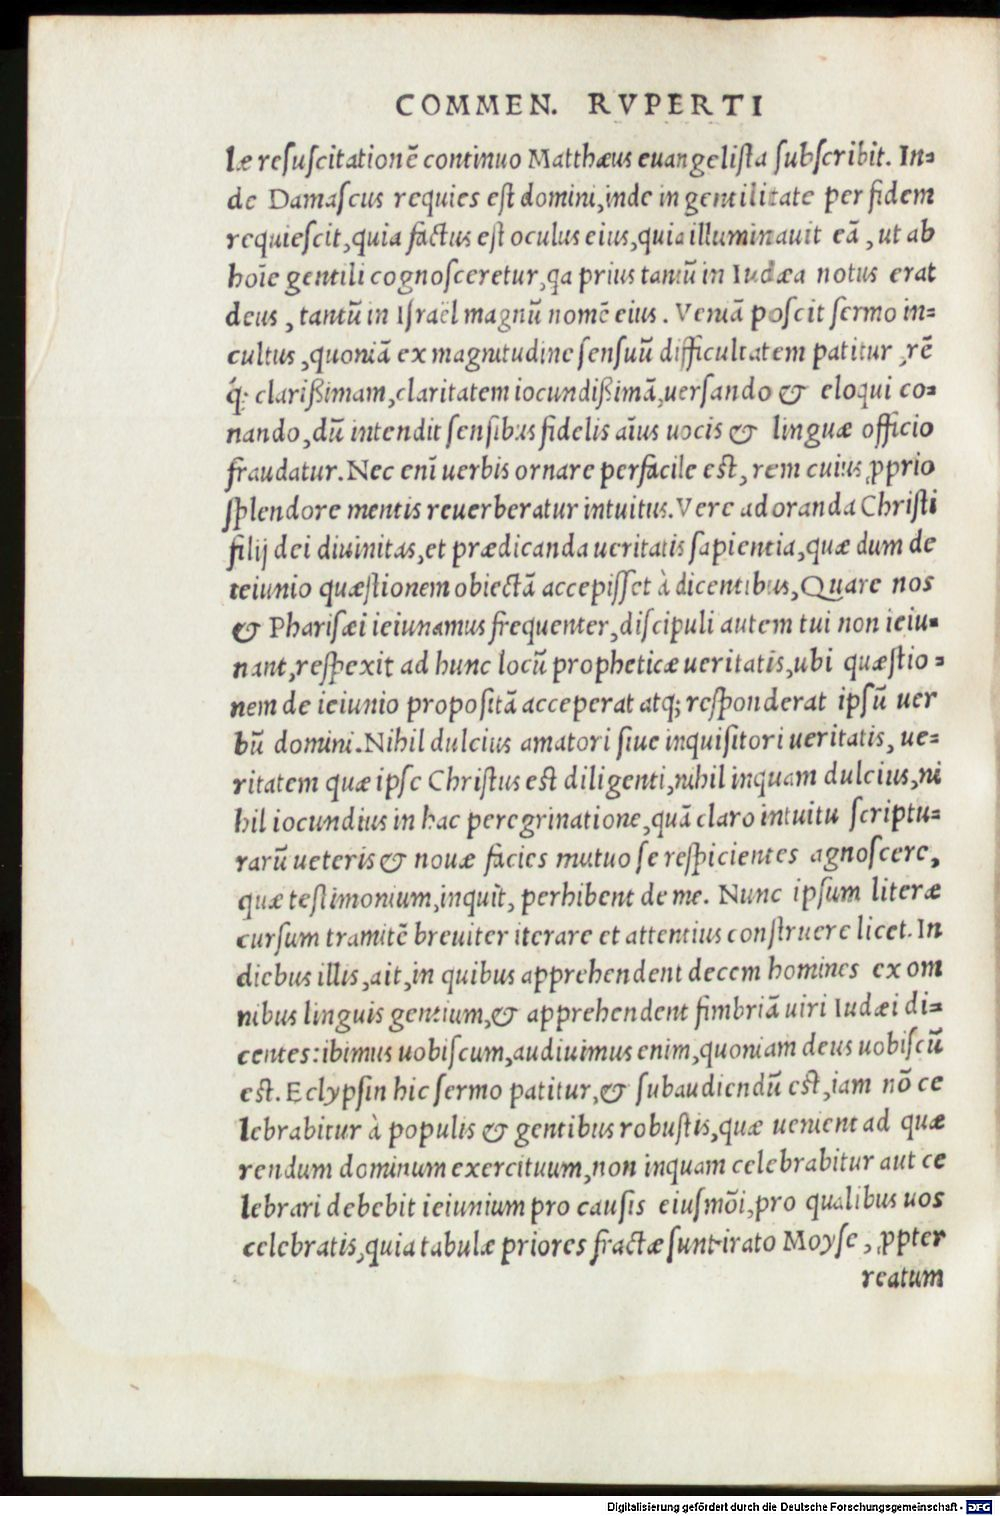 COMMEN. RVPERTI
læ resuscitationē continuo Matthæus euangelista subscribit. In=
de Damascus requies est domini, inde in gentilitate per fidem
requiescit, quia factus est oculus eius, quia illuminauit eā, ut ab
hoīe gentili cognosceretur, qa prius tantū in Iudæa notus erat
deus, tantū in Israël magnū nomē eius. Veniā poscit sermo in=
cultus, quoniā ex magnitudine sensuū difficultatem patitur, rē
q́; clarißimam, claritatem iocundißimā, uersando & eloqui co=
nando, dū intendit sensibus fidelis aīus uocis & linguæ officio
fraudatur. Nec enī uerbis ornare perfacile est, rem cuius ꝓprio
splendore mentis reuerberatur intuitus. Vere adoranda Christi
filij dei diuinitas, et prædicanda ueritatis sapientia, quæ dum de
ieiunio quæstionem obiectā accepisset à dicentibus, Quare nos
& Pharisæi ieiunamus frequenter, discipuli autem tui non ieiu=
nant, respexit ad hunc locū propheticæ ueritatis, ubi quæstio=
nem de ieiunio propositā acceperat atq; responderat ipsū uer
bū domini. Nihil dulcius amatori siue inquisitori ueritatis, ue=
ritatem quæ ipse Christus est diligenti, nihil inquam dulcius, ni
hil iocundius in hac peregrinatione, quā claro intuitu scriptu=
rarū ueteris & nouæ facies mutuo se respicientes agnoscere,
quæ testimonium, inquit, perhibent de me. Nunc ipsum literæ
cursum tramitē breuiter iterare et attentius construere licet. In
diebus illis, ait, in quibus apprehendent decem homines ex om
nibus linguis gentium, & apprehendent fimbriā uiri Iudæi di=
centes: ibimus uobiscum, audiuimus enim, quoniam deus uobiscū
est. Eclypsin hic sermo patitur, & subaudiendū est, iam nō ce
lebrabitur à populis & gentibus robustis, quæ uenient ad quæ
rendum dominum exercituum, non inquam celebrabitur aut ce
lebrari debebit ieiunium pro causis eiusmōi, pro qualibus uos
celebratis, quia tabulæ priores fractæ sunt irato Moyse, ꝓpter
reatum
Digitalisierung gefördert durch die Deutsche Forschungsgemeinschaft - DFG